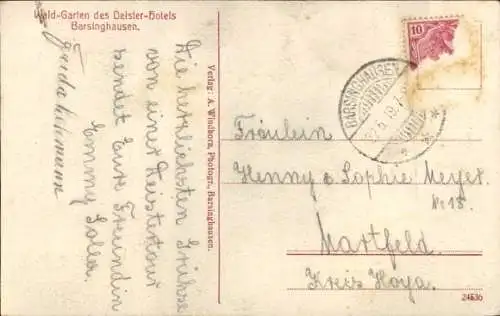 Wald-Garten des Deister-Hotels
Barsinghausen.
Die herzlichsten Grüße
von einer Deistertour
sendet Eure Freundin
Emmy
Frida
Verlag: A. Windhorn, Photogr., Barsinghausen.
10
BARSINGHAUSEN
Fräulein
Henny u Sophie Meyer
No 15.
Martfeld.
Kreis Hoya.
24530